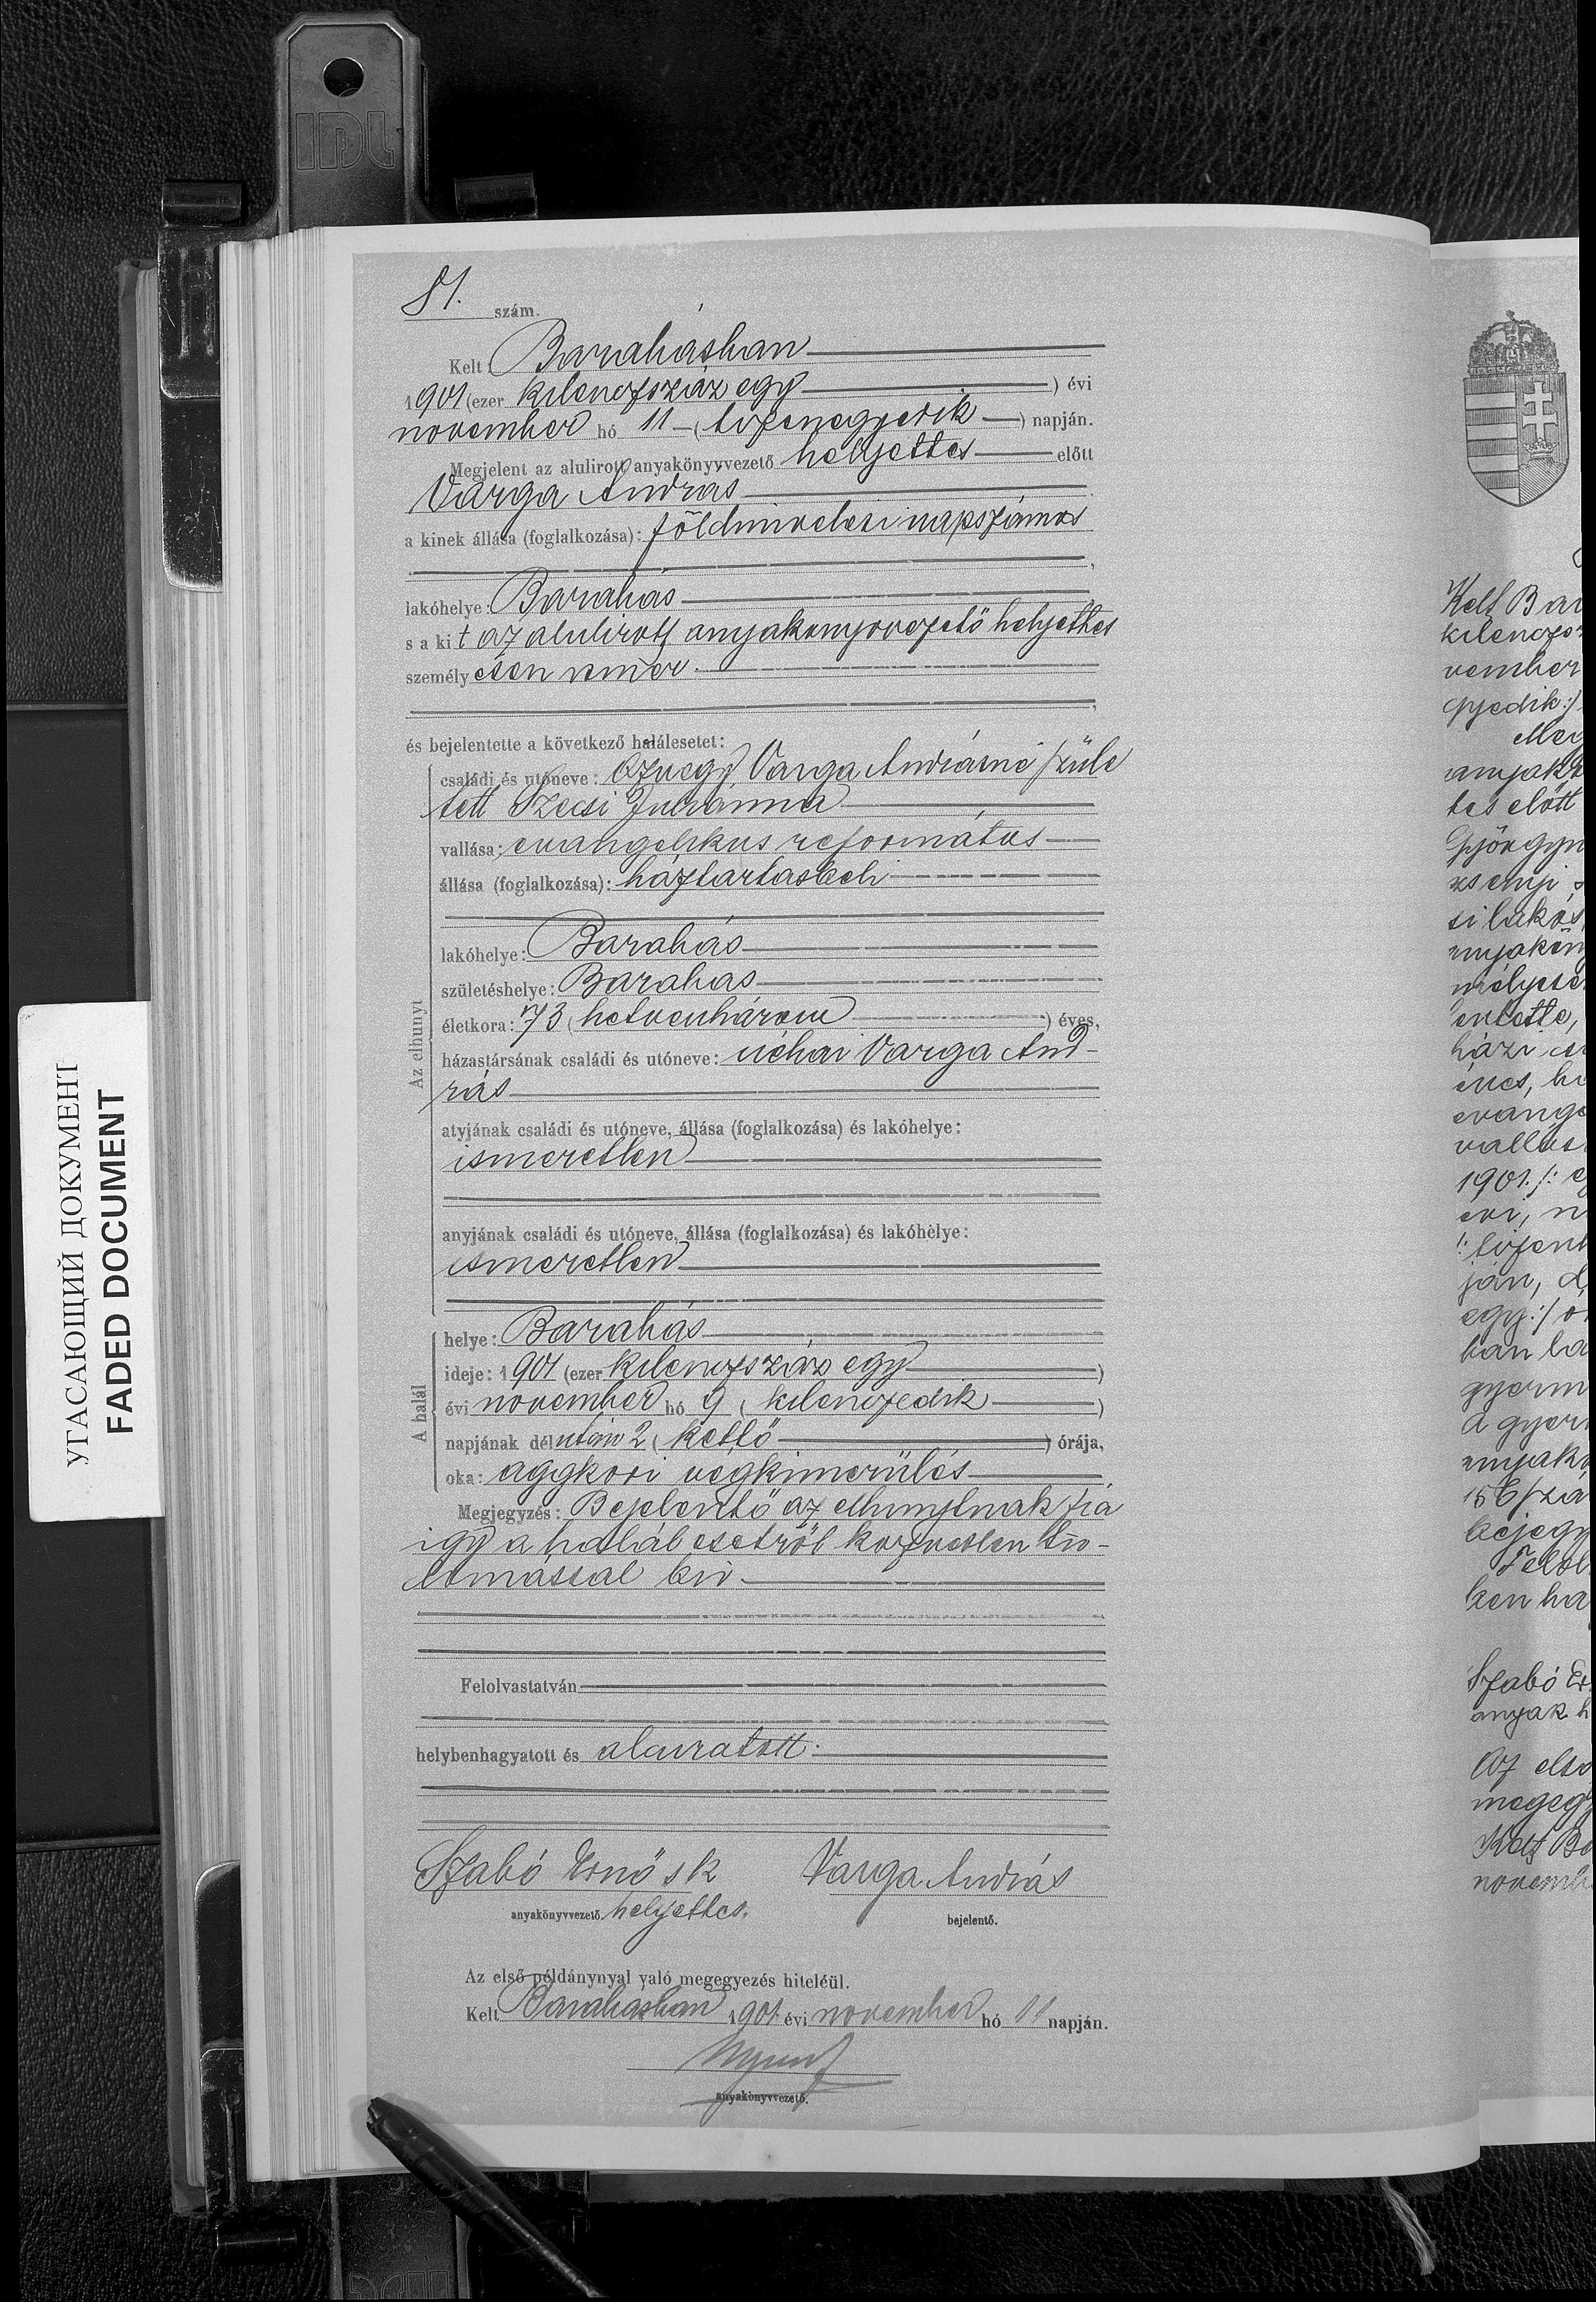 IDL
81. szám.
Kelt: Barahásban
1901 (ezer kilenczszáz egy) évi
november hó 11 (tizenegyedik) napján.
Megjelent az alulirott anyakönyvvezető helyettes előtt
Varga András
a kinek állása (foglalkozása): földmivelesi napszámos
lakóhelye: Barahás
s a kit az alulirott anyakönyvvezető helyettes
személyesen ismer
és bejelentette a következő halálesetet:
Az elhunyt
családi és utóneve: özvegy Varga Andrásné szüle
tett Szecsi Juliánna
vallása: evangelikus református
állása (foglalkozása): háztartásbeli
lakóhelye: Barahás
születéshelye: Barahas
életkora: 73 (hetvenhárom) éves,
házastársának családi és utóneve: néhai Varga And-
rás
atyjának családi és utóneve, állása (foglalkozása) és lakóhelye:
ismeretlen
anyjának családi és utóneve, állása (foglalkozása) és lakóhelye:
ismeretlen
A halál
helye: Barahás
ideje: 1901 (ezer kilenczszáz egy)
évi november hó 9 (kilenczedik)
napjának délután 2 (kettő) órája,
oka: aggkori végkimerülés
Megjegyzés: Bejelentő az elhunytnak fia
igy a halál esetről közvetlen tu-
domással bir
Felolvastatván
helybenhagyatott és aláiratott.
Szabó Ernő sk Varga András
anyakönyvvezető. helyettes. bejelentő.
Az első példánynyal való megegyezés hiteléül.
Kelt Barahásban 1901 évi november hó 11 napján.
anyakönyvvezető.
УГАСАЮЩИЙ ДОКУМЕНТ
FADED DOCUMENT
Kelt Bar
kilenczsz
vember
gyedik:/
Meg
anyakö
tes előtt
György
si lakós
anyakön
mélyese
lentette,
házi
évang
vallás
1901. /: e
evi, n
/: tizen
ján, d
egy:/ ó
ban la
gyerm
A gyer
anyak
156 szá
bejegy
Felol
ben ha
Szabó Er
anyak h
Az első
megegy
Kelt Ba
novemb